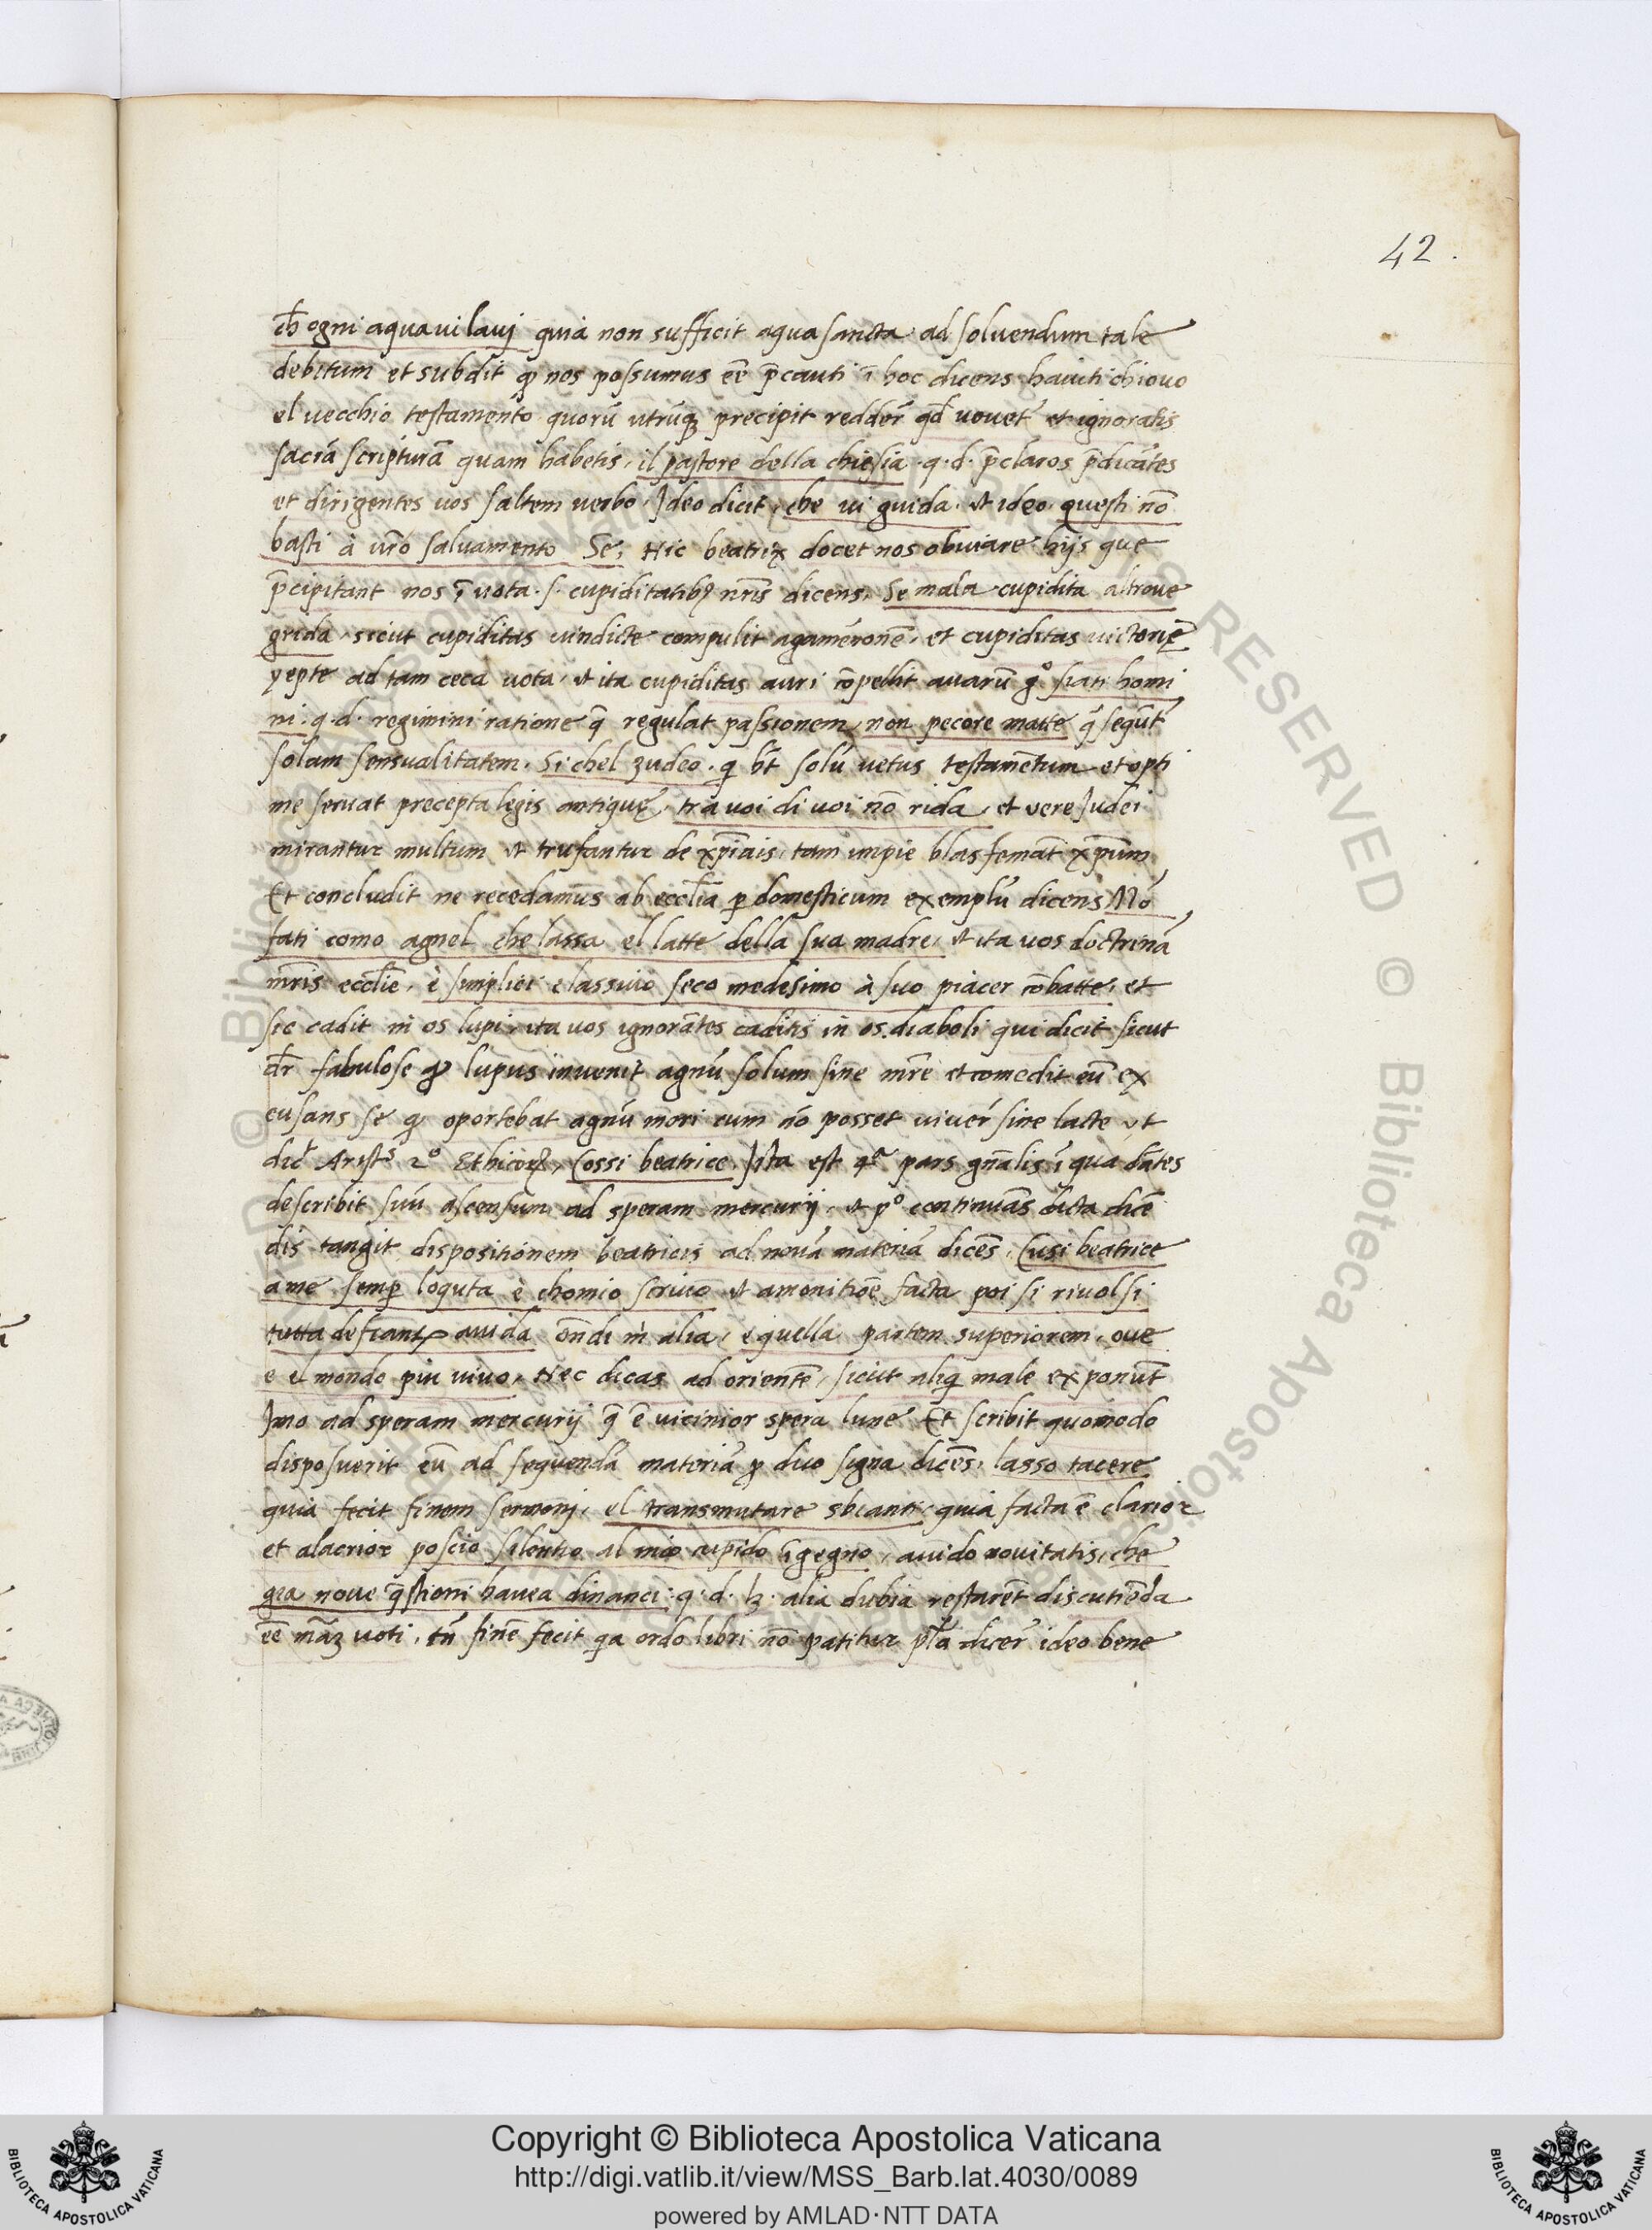 42.
ch̄ ogni aqua vi lavj quia non sufficit aqua sancta ad solvendum tale
debitum et subdit qꝫ nos possumus eē p̄cauti ī hoc dicens haviti chiovo
el vecchio testamento quorū utrūqꝫ precipit redder̄ qd̄ uouet̄ et ignoratis
sacrā scripturā quam habetis, il pastore della chiesia .q.d. p̄claros p̄dicātes
et dirigentes vos saltem verbo, Ideo dicit, che vi guida. et ideo questi nō
basti à vr̄o salvamento Se, Hic beatrix docet nos obviare hijs que
p̄cipitant nos ī vota .s. cupiditatibꝫ nr̄is dicens, Se mala cupidita altrove
grida, sicut cupiditas vindicte compulit agamēnonē, et cupiditas victorię
yepte ad tam ceca vota, et ita cupiditas auri cōpellit avarū gº siati homi
ni .q.d. regimini ratione q̄ regulat passionem, non pecore matte q̄ sequūt
solam sensualitatem. Si chel zudeo. qi ht̄ solū vetus testamētum et opti
me servat precepta legis antiquę, tra voi di voi nō rida, et vere Judei
mirantur multum et trufantur de xp̄iais, tam impie blasfemāt xp̄um,
Et concludit ne recedamus ab eccl̄ia p domesticum exemplū dicens Nō
fati como agnel che lassa el latte della sua madre, et ita vos doctrinā
mr̄is eccl̄ie, è simplici e lassivo seco medesimo à suo piacer cōbatte, et
sic cadit in os lupi, ita vos ignorātes caditis in os diaboli qui dicit sicut
dr̄ fabulose qꝫ lupus invenit agnū solum sine mr̄e et comedit eū ex
cusans se qꝫ oportebat agnū mori cum nō posset viver̄ sine lacte ut
dic̄ Aristˢ 2º Ethicoꝝ, Cossi beatrice. Ista est 4ª pars gn̄alis ī qua dātes
describit suū ascensum ad speram mercurij. et pº continuās dicta dicē
dis tangit dispositionem beatricis ad novā materiā dicēs, Cusi beatrice
a me semp loquta è chomio scrivo et amonitiōe facta poi si rivolsi
tutta desiante avida ōndi in alia, e quella partem superiorem, ove
e el mondo piu vivo, Nec dicas ad orientē, sicut aliqi male exponūt
Imo ad speram mercurij q̄ ē vicinior spera lune Et scribit quomodo
disposuerit eū ad sequendā materiā p duo signa dicēs, lasso tacere
quia fecit finem sermonj, el transmutare sbianti quia facta ē clarior
et alacrior poscio silentio al mio cupido īgegno, avido novitatis, che
gia nove q̄stioni havea dinanci: q.d. lꝫ alia dubia restarēt discutiēda
eē māꝫ voti, tn̄ finē fecit qa ordo libri nō patitur pl̄a dicer̄ ideo bene
Copyright © Biblioteca Apostolica Vaticana
http://digi.vatlib.it/view/MSS_Barb.lat.4030/0089
powered by AMLAD·NTT DATA